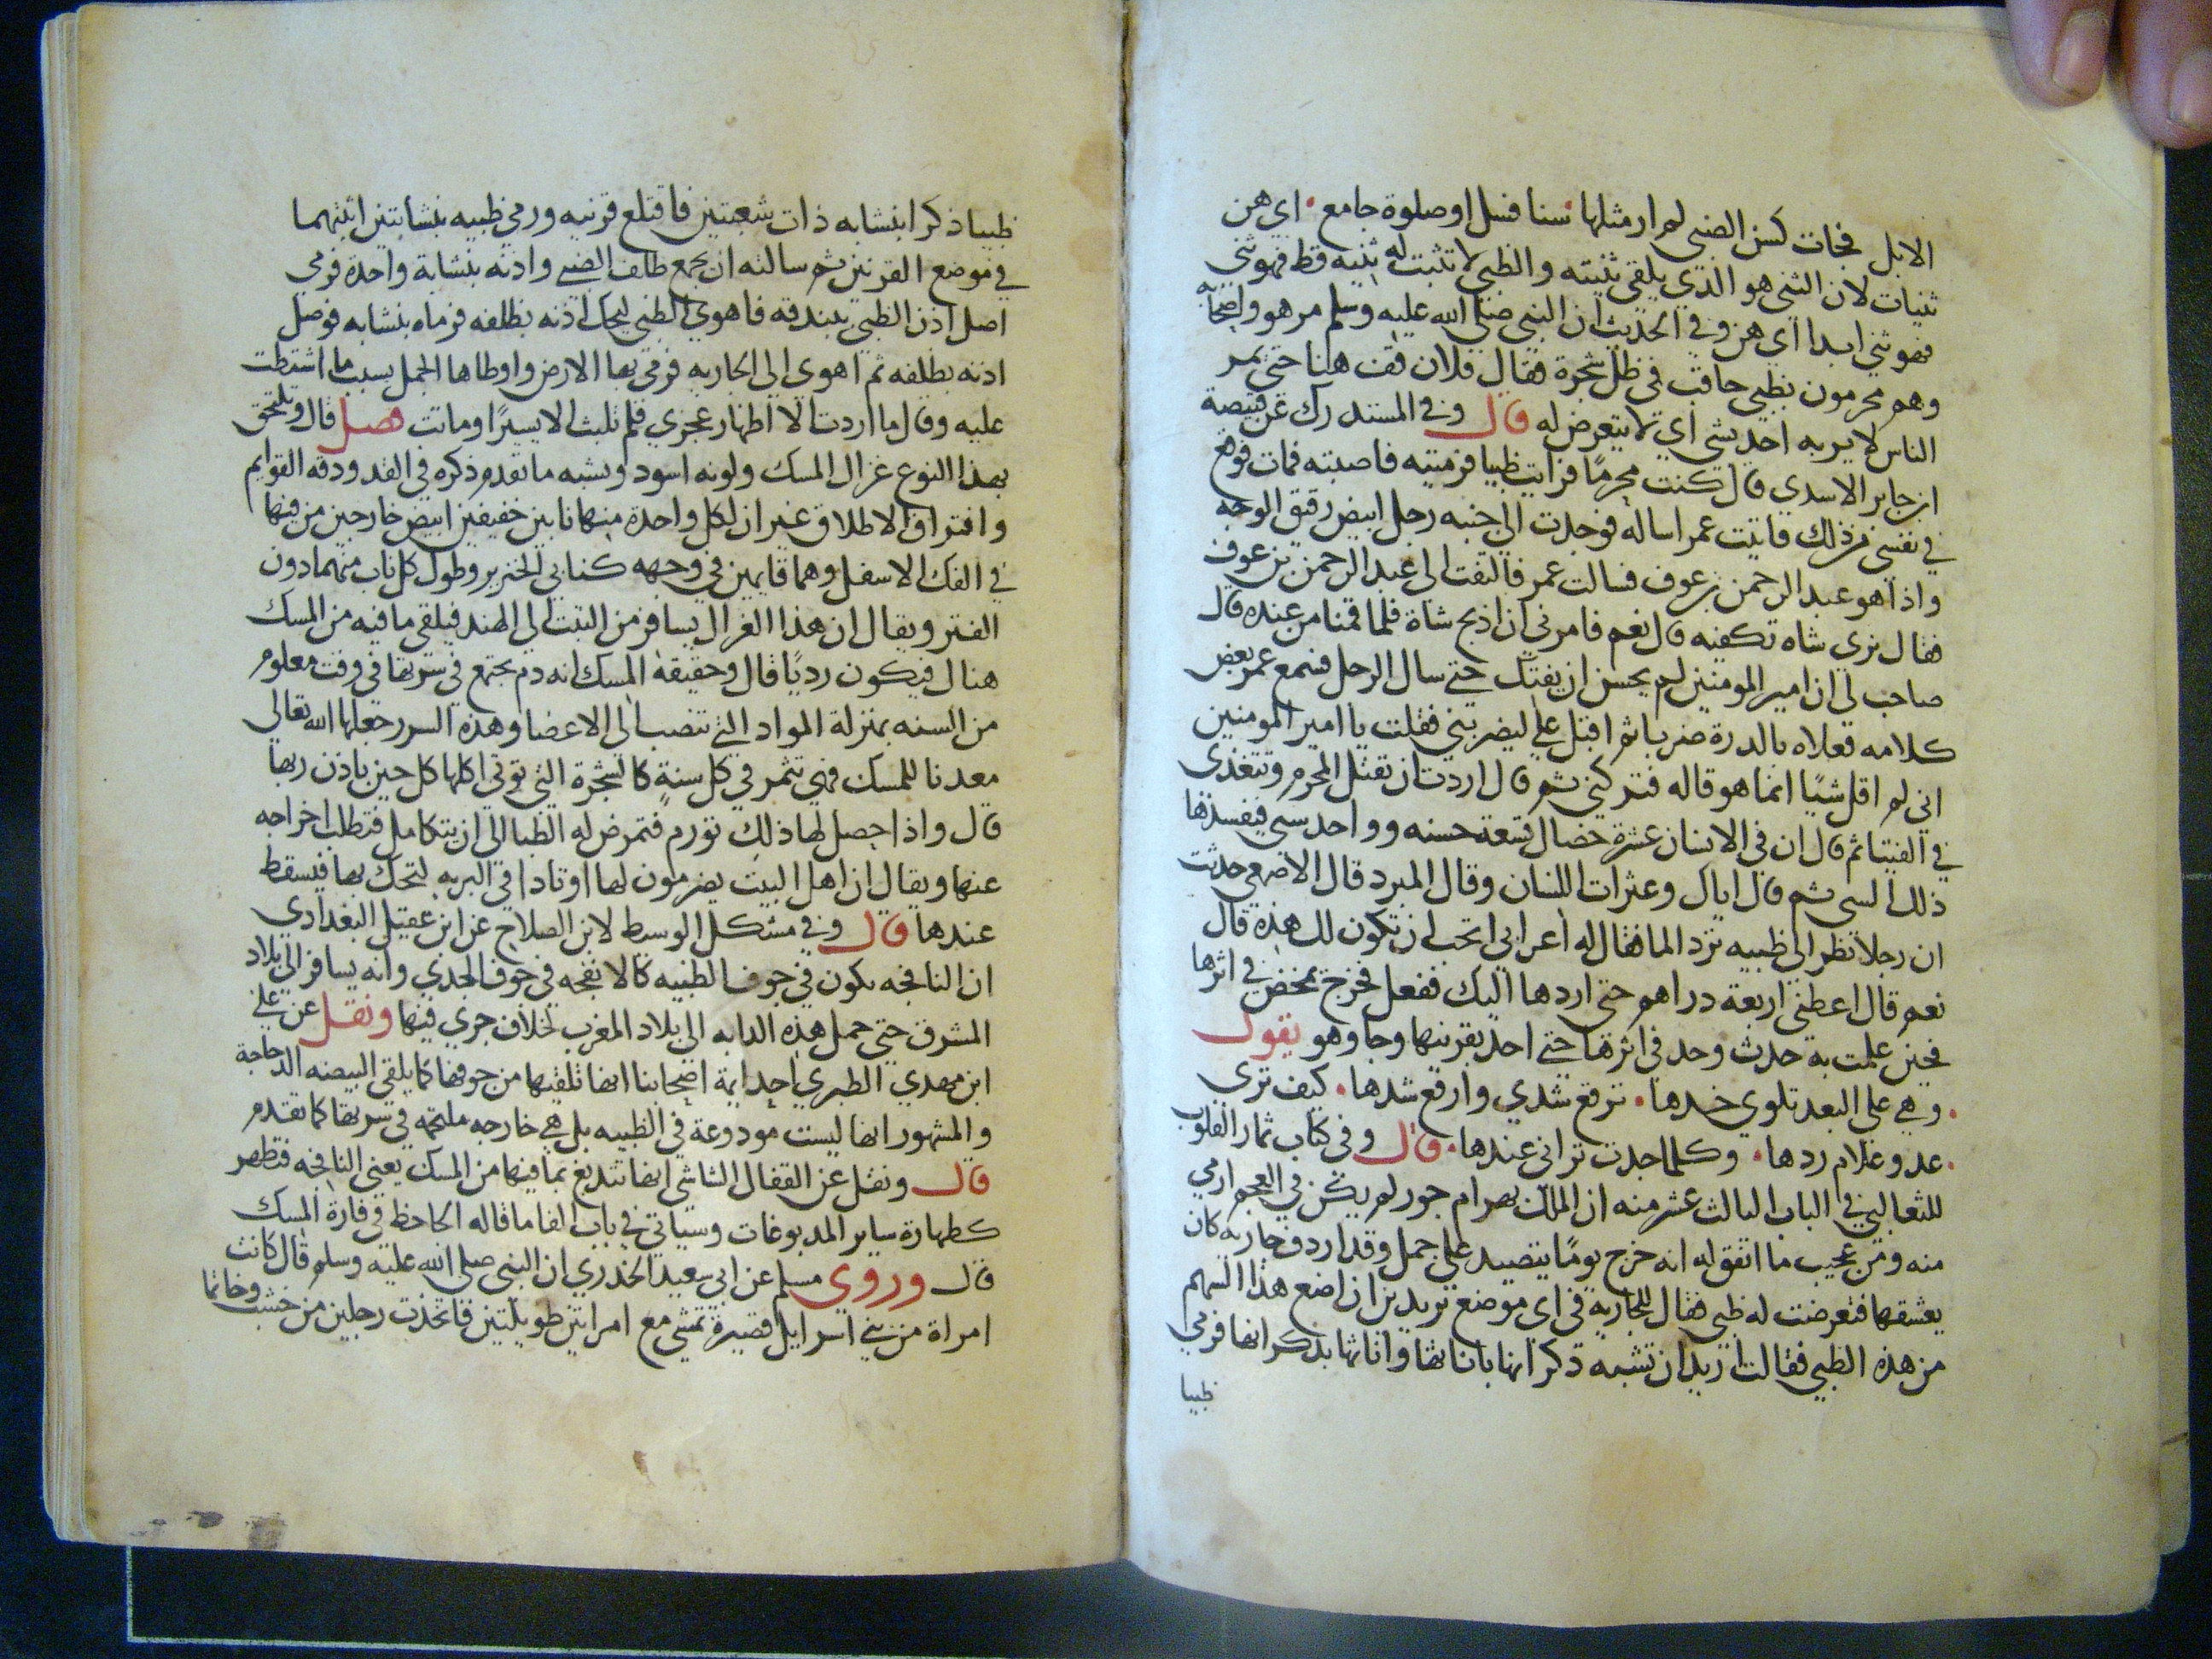 الابل فجات كسن الضبى لم ار مثلها سنا فسل او صلوة جامع اى هن
ثنيات لان الثنى هو الذى يلقى ثنيته والظبى لا تثبت له ثنيه قط فهو ثنى
فهو ثنى ابدا اى هن وفى الحديث ان النبى صلى الله عليه وسلم مر هو واصحابه
وهم محرمون بظبى حاقف فى ظل شجرة فقال فلان قف هاهنا حتى يمر
الناس لا يريبه احد بشى اى لا يتعرض له قال وفى المستدرك عن قبيصة
ابن جابر الاسدى قال كنت محرمًا فرايت ظبيا فرميته فاصبته فمات فوقع
فى نفسى من ذلك فاتيت عمر اساله فوجدت الى جنبه رجل ابيض رقيق الوجه
واذا هو عبد الرحمن بن عوف فسالت عمر فالتفت الى عبد الرحمن بن عوف
فقال ترى شاه تكفيه قال نعم فامرنى ان اذبح شاة فلما قمنا من عنده قال
صاحب لى ان امير المومنين لم يحسن ان يفتك حتى سال الرجل فسمع عمر بعض
كلامه فعلاه بالدرة ضربا ثم اقبل على ليضربنى فقلت يا امير المومنين
انى لم اقل شيًا انما هو قاله فتركنى ثم قال اردت ان تقتل المحرم وتتعدى
فى الفتيا ثم قال ان فى الانسان عشرة خصال تسعة حسنه وواحد سى فيفسدها
ذلك السى ثم قال اياك وعثرات اللسان وقال المبرد قال الاصمعى حدثت
ان رجلا نظر الى ظبيه ترد الما فقال له اعرابى اتحب ان تكون لك هذه قال
نعم قال اعطنى اربعة دراهم حتى اردها اليك ففعل فخرج يمحض فى اثرها
فحين علمت به حدث وجد فى اثرها حتى اخذ بقرنيها وجا وهو يقول
وهى على البعد تلوى خدها ترقع شدى وارقع شدها كيف ترى
عدو غلام ردها وكلما جدت ترانى عندها قال وفى كتاب ثمار القلوب
للثعالبى فى الباب الثالث عشر منه ان الملك بهرام جور لم يكن فى العجم ارمى
منه ومن عجيب ما اتفق له انه خرج يومًا يتصيد على جمل وقد اردف جاريه كان
يعشقها فتعرضت له ظبى فقال للجارية فى اى موضع تريدين ان اضع هذا السهم
من هذه الظبى فقالت اريد ان تشبه ذكرانها باناثها واناثها بذكرانها فرمى
ظبيا
ظبيا ذكرا بنشابه ذات شعبتين فاقتلع قرنيه ورمى ظبيه بنشابتين اثبتهما
فى موضع القرنين ثم سالته ان يجمع ظلف الضبى واذنه بنشابة واحدة فرمى
اصل اذن الظبى ببندقه فاهوى الظبى ليحك اذنه بظلفه فرماه بنشابه فوصل
اذنه بظلفه ثم اهوى الى الجاريه فرمى بها الارض واوطاها الجمل بسبب ما اشتطت
عليه وقال ما اردت الا اظهار عجزى فلم تلبث الا يسيرًا وماتت فصل قال ويلتحق
بهذا النوع غزال المسك ولونه اسود ويشبه ما تقدم ذكره فى القد ودقه القوايم
وافتراق الاظلاق غير ان لكل واحدة منها نابين خفيفين ابيض خارجين من فيها
فى الفك الاسفل وهما قايمين فى وجهه كنابى الخنزير وطول كل ناب منهما دون
الفتر ويقال ان هذا الغزال يسافر من التبت الى الهند فيلقى ما فيه من المسك
هناك فيكون رديًا قال وحقيقة المسك انه دم يجتمع فى سرتها فى وقت معلوم
من السنه بمنزلة المواد التى تنصب الى الاعضا وهذه السرر جعلها الله تعالى
معدنا للمسك فهى تثمر فى كل سنةٍ كالشجرة التى توتى اكلها كل حين باذن ربها
قال واذا حصل لها ذلك تورم فتمرض له الظبا الى ان يتكامل فتطلب اخراجه
عنها ويقال ان اهل البيت يضرمون لها اوتادا فى البريه لتحك بها فيسقط
عندها قال وفى مشكل الوسيط لابن الصلاح عن ابن عقيل البغدادى
ان النافجه يكون فى جوف الظبيه كالانفجه فى جوف الجدى وانه يسافر الى بلاد
المشرق حتى حمل هذه الدابه الى بلاد المغرب لخلاف جرى فيها ونقل عن على
ابن مهدى الطبرى احد ايمة اصحابنا انها تلقيها من جوفها كما يلقى البيضه الدجاجة
والمشهور انها ليست مودوعة فى الظبيه بل هى خارجه ملتحمه فى سرتها كما تقدم
قال ونقل عن القفال الشاشى انها تندبغ بما فيها من المسك يعنى النافجه فتطهر
كطهارة ساير المدبوغات وسياتى فى باب الفا ما قاله الجاحظ فى فارة المسك
قال وروى مسلم عن ابى سعيد الخدرى ان النبى صلى الله عليه وسلم قال كانت
امراة من بنى اسرايل قصيرة تمشى مع امراتين طويلتين فاتخذت رجلين من خشب وخاتما